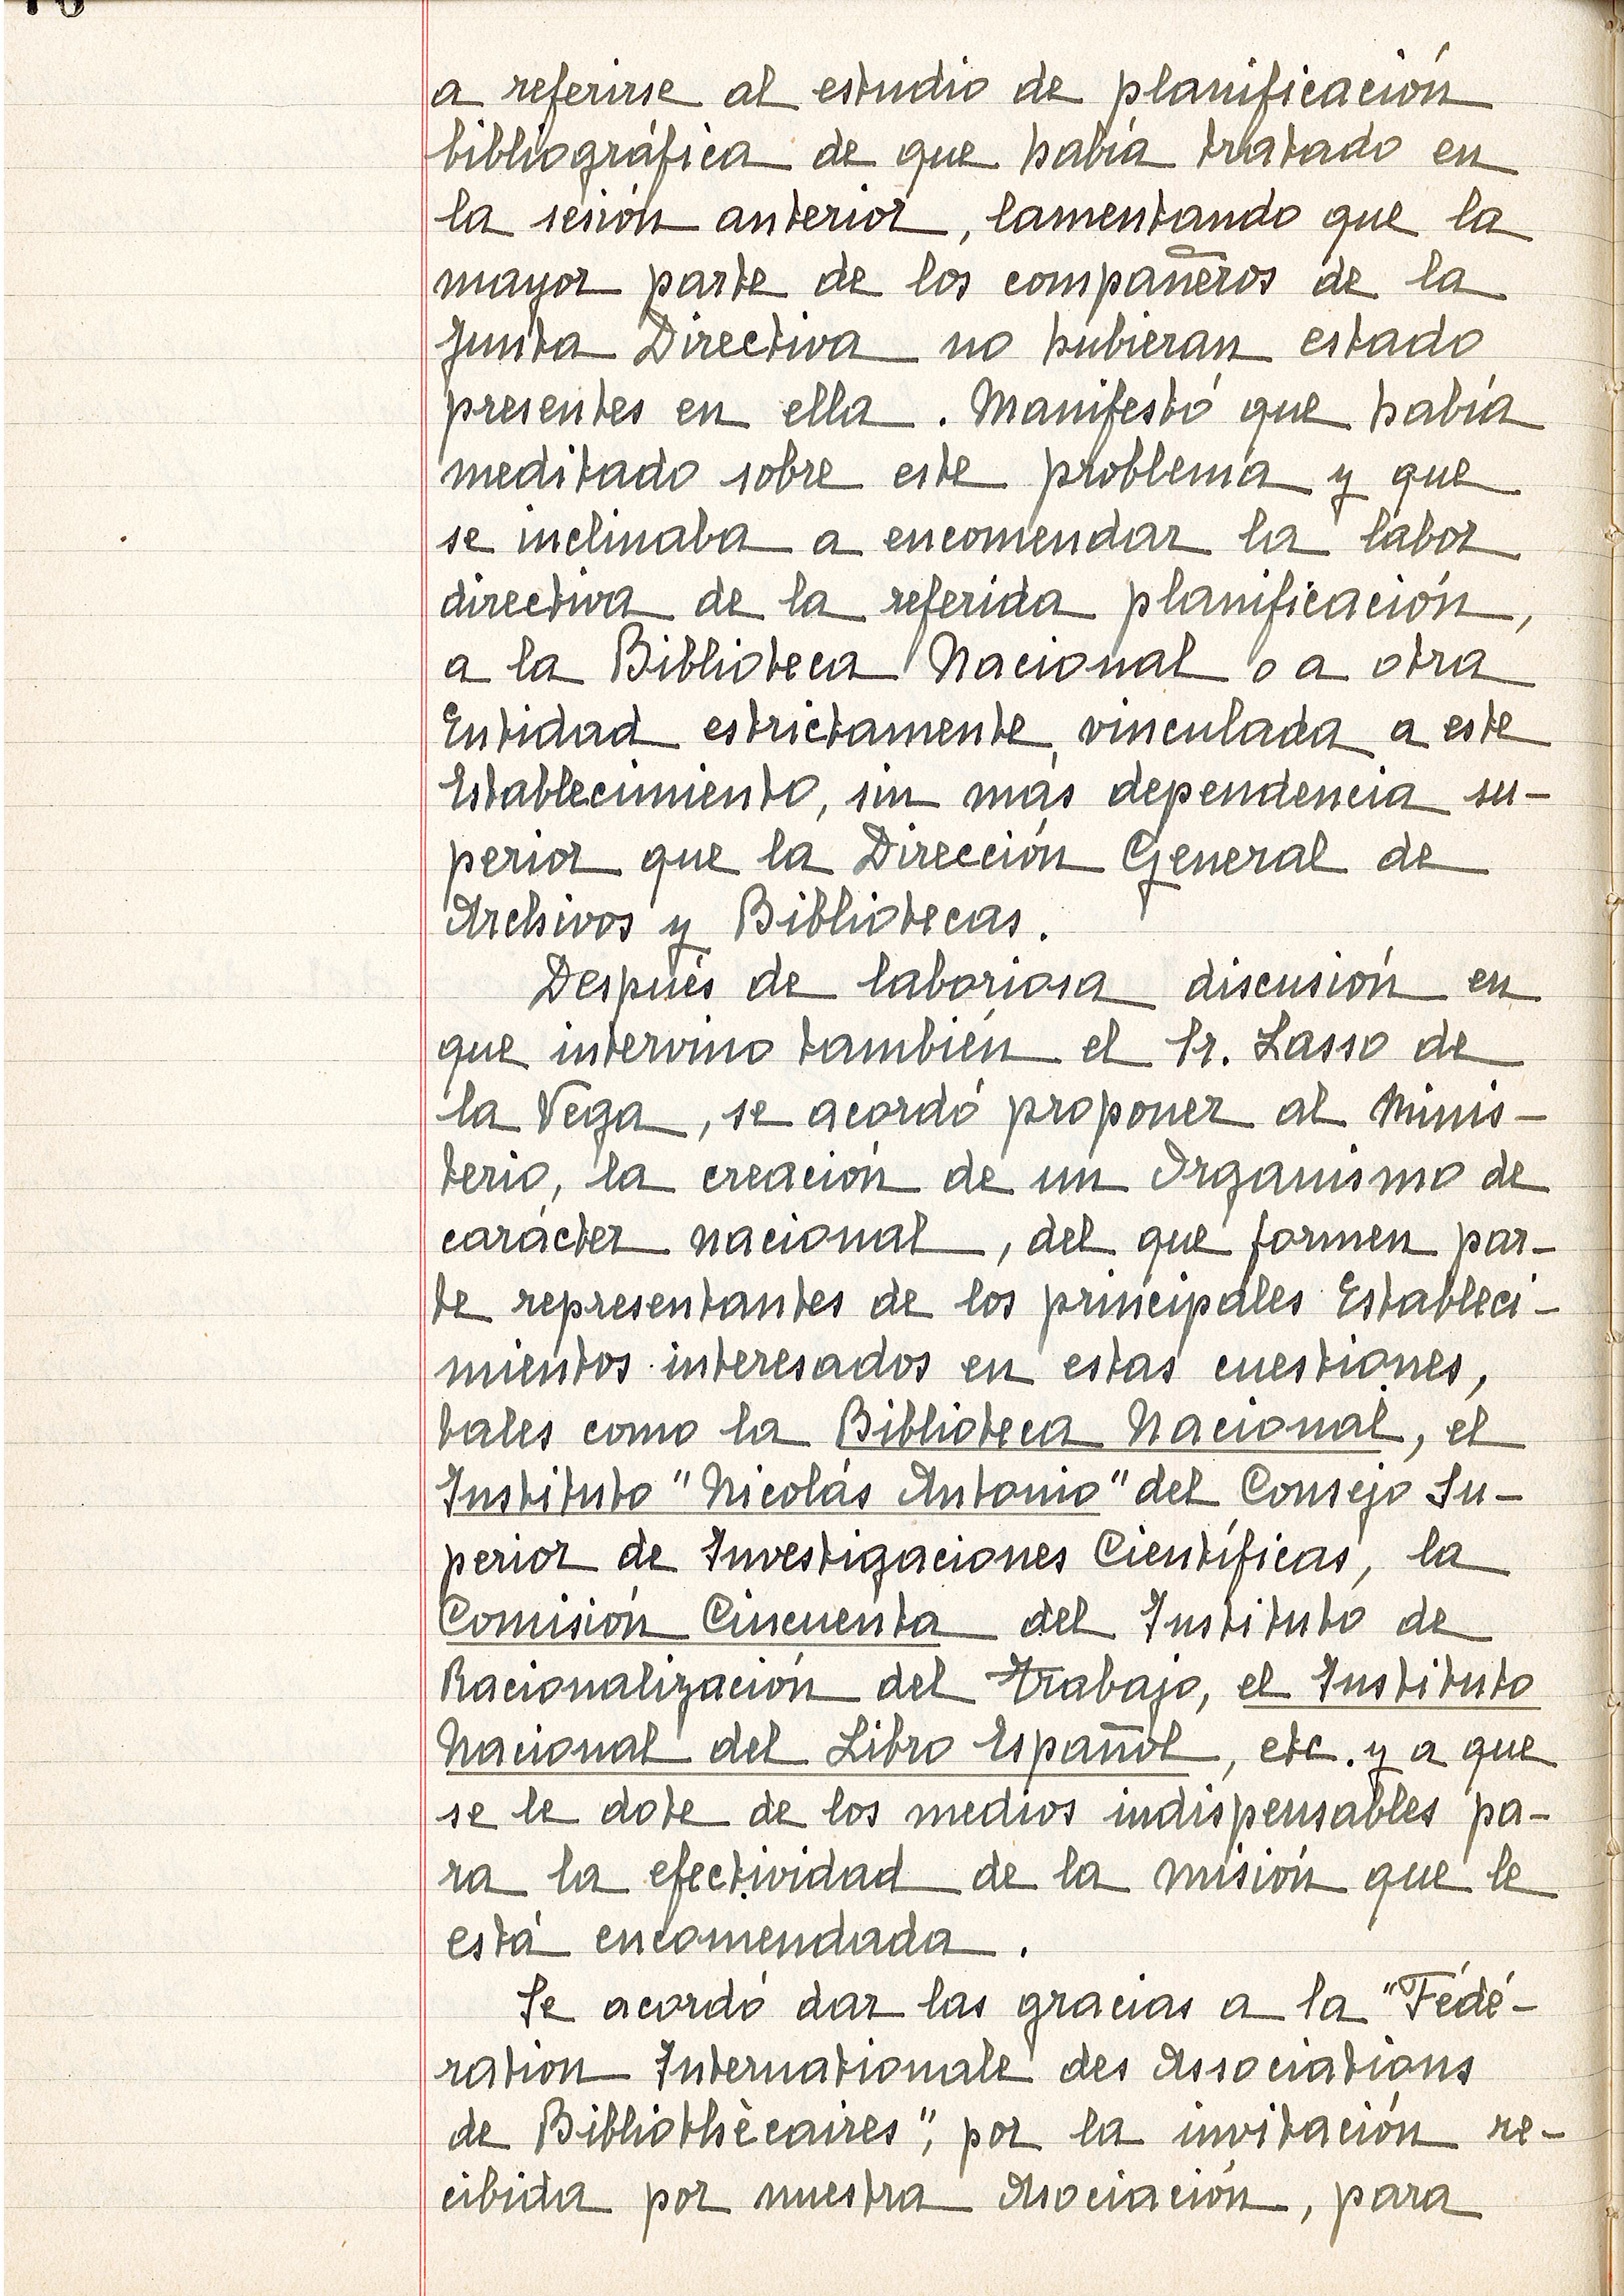 a referirse al estudio de planificación
bibliográfica de que había tratado en
la sesión anterior, lamentando que la
mayor parte de los compañeros de la
Junta Directiva no hubieran estado
presentes en ella. Manifestó que había
meditado sobre este problema y que
se inclinaba a encomendar la labor
directiva de la referida planificación,
a la Biblioteca Nacional o a otra
Entidad estrictamente vinculada a este
Establecimiento, sin más dependencia su-
perior que la Dirección General de
Archivos y Bibliotecas.
Después de laboriosa discusión en
que intervino también el Sr. Lasso de
la Vega, se acordó proponer al Minis-
terio, la creación de un Organismo de
carácter nacional, del que formen par-
te representantes de los principales Estableci-
mientos interesados en estas cuestiones,
tales como la Biblioteca Nacional, el
Instituto "Nicolás Antonio" del Consejo Su-
perior de Investigaciones Científicas, la
Comisión Cincuenta del Instituto de
Racionalización del Trabajo, el Instituto
Nacional del Libro Español, etc. y a que
se le dote de los medios indispensables pa-
ra la efectividad de la misión que le
está encomendada.
Se acordó dar las gracias a la "Fédé-
ration Internationale des Associations
de Bibliothècaires", por la invitación re-
cibida por nuestra Asociación, para